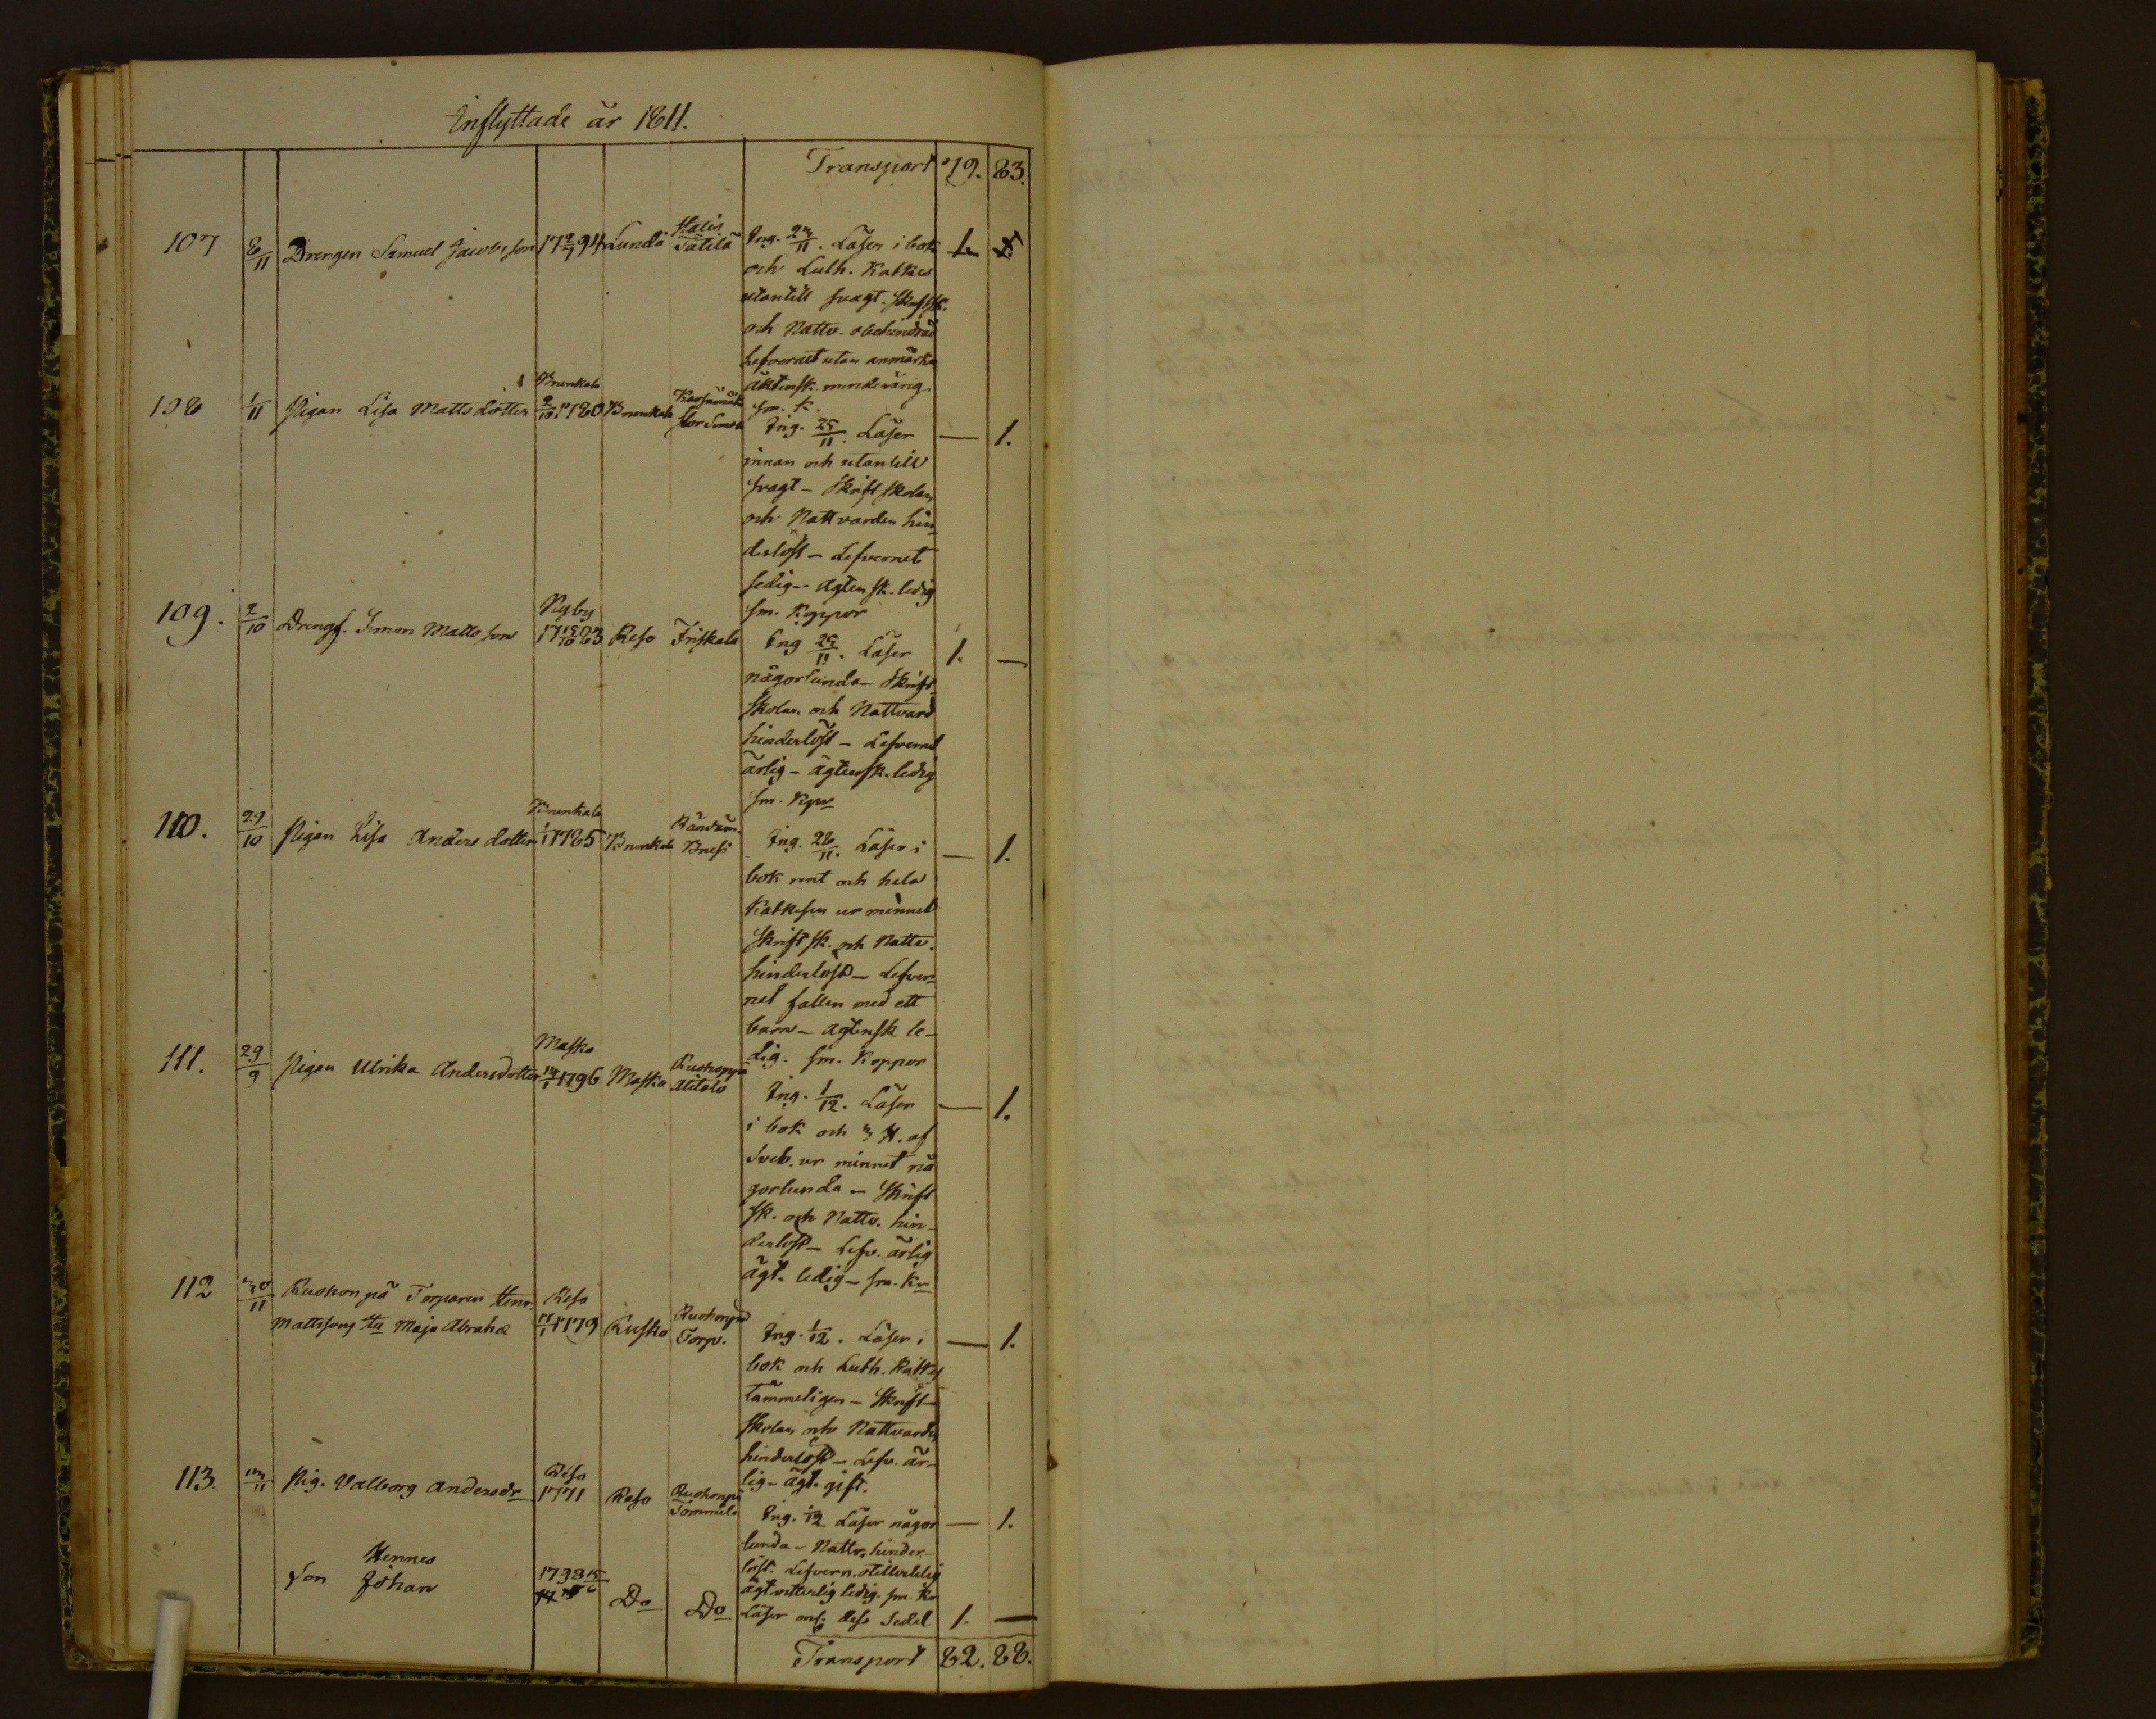 Inflyttade år 1811.
Transport 79. 83.
107 8/11 Drengen Samuel Jacobsson 17 2/7 94 Lundå Halis Tätilä Ing. 23/11. Läser i bok 1. 1.
och Luth. Katkes
utantill svagt. Skriftsk.
och Nattv. obehindrad
Lefvernet utan anmärkn
äktensk. mindeårig
sm. k.
108 1/11 Pigan Lisa Matts dotter Brunkala 2/10 1780 Brunkala Ing. 25/11. Läser — 1.
innan och utantill
svagt – Skriftskolan
och Nattvarden hin-
derlöst – Lefvernet
sedig – Agtensk. ledig
sm. Koppor
109. 2/10 Drengs. Simon Mattsson Nyby 17 15/10 83 Reso Friskala Ing 25/11. Läser 1. —
någorlunda – Skrift-
skolan och Nattvard
hinderlöst – Lefvernet
ärlig – ägtensk. ledig
sm. Kpr
110. 29/10 Pigan Lisa Anders dotter Brunkala 1/1 1785 Brunkala Ing. 28/11. Läser i — 1.
bok rent och hela
Katkesen ur minnet
Skriftsk. och Nattv.
hinderlöst – Lefver-
net fallen med ett
barn – Agtensk le-
dig. sm. Koppor
111. 29/9 Pigan Ulrika Andersdotter Masko 14/1 1796 Masko Ruohonpä Alitalo Ing. 1/12. Läser — 1.
i bok och 3 H. af
Sveb. ur minnet nå
gorlunda – Skrift
sk. och Nattv. hin-
derlöst – Lefv. ärlig
ägt. ledig – sm. Kr
112 30/11 Ruohonpä Torparen Henr. Reso
Mattssons Hu Maja Abrahd 1/1 1779 Rusko Ruohonpä Torp. Ing. 1/12. Läser i — 1.
bok och Luth. Katkes
tämmeligen – Skrift-
skolan och Nattvarden
hinderlöst – Lefv. är-
lig – ägt. gift.
113. 13/11 Pig. Valborg Andersdr Reso 1771 Reso Ruohonpä Tommila Ing. 1/12 Läser någor — 1.
lunda – Nattv. hinder-
löst. Lefvern.
ägt. ledig. sm. Kr
Hennes
Son Johan 1798 15/6 Do Do Läser enl. dess Sedel 1. —
Transport 82. 88.